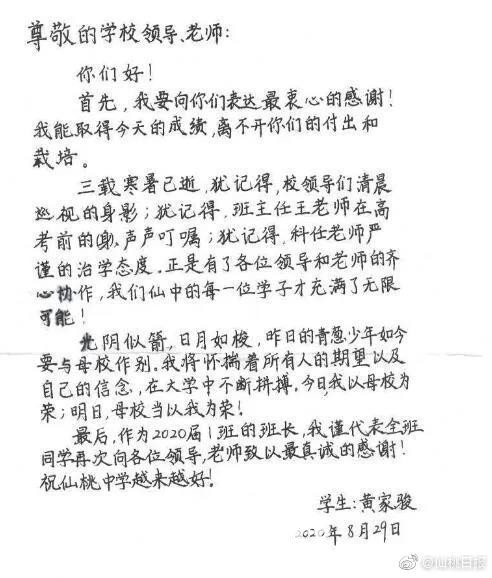 尊敬的学校领导、老师:
你们好!
首先,我要向你们表达最衷心的感谢!
我能取得今天的成绩,离不开你们的付出和
栽培。
三载寒暑已逝,犹记得,校领导们清晨
巡视的身影;犹记得,班主任王老师在高
考前的声声叮嘱;犹记得,科任老师严
谨的治学态度。正是有了各位领导和老师的齐
心协作,我们仙中的每一位学子才充满了无限
可能!
光阴似箭,日月如梭,昨日的青葱少年如今
要与母校作别。我将怀揣着所有人的期望以及
自己的信念,在大学中不断拼搏。今日,我以母校为
荣;明日,母校当以我为荣!
最后,作为2020届1班的班长,我谨代表全班
同学再次向各位领导,老师致以最真诚的感谢!
祝仙桃中学越来越好!
学生:黄家骏
2020年8月29日
@仙桃日报